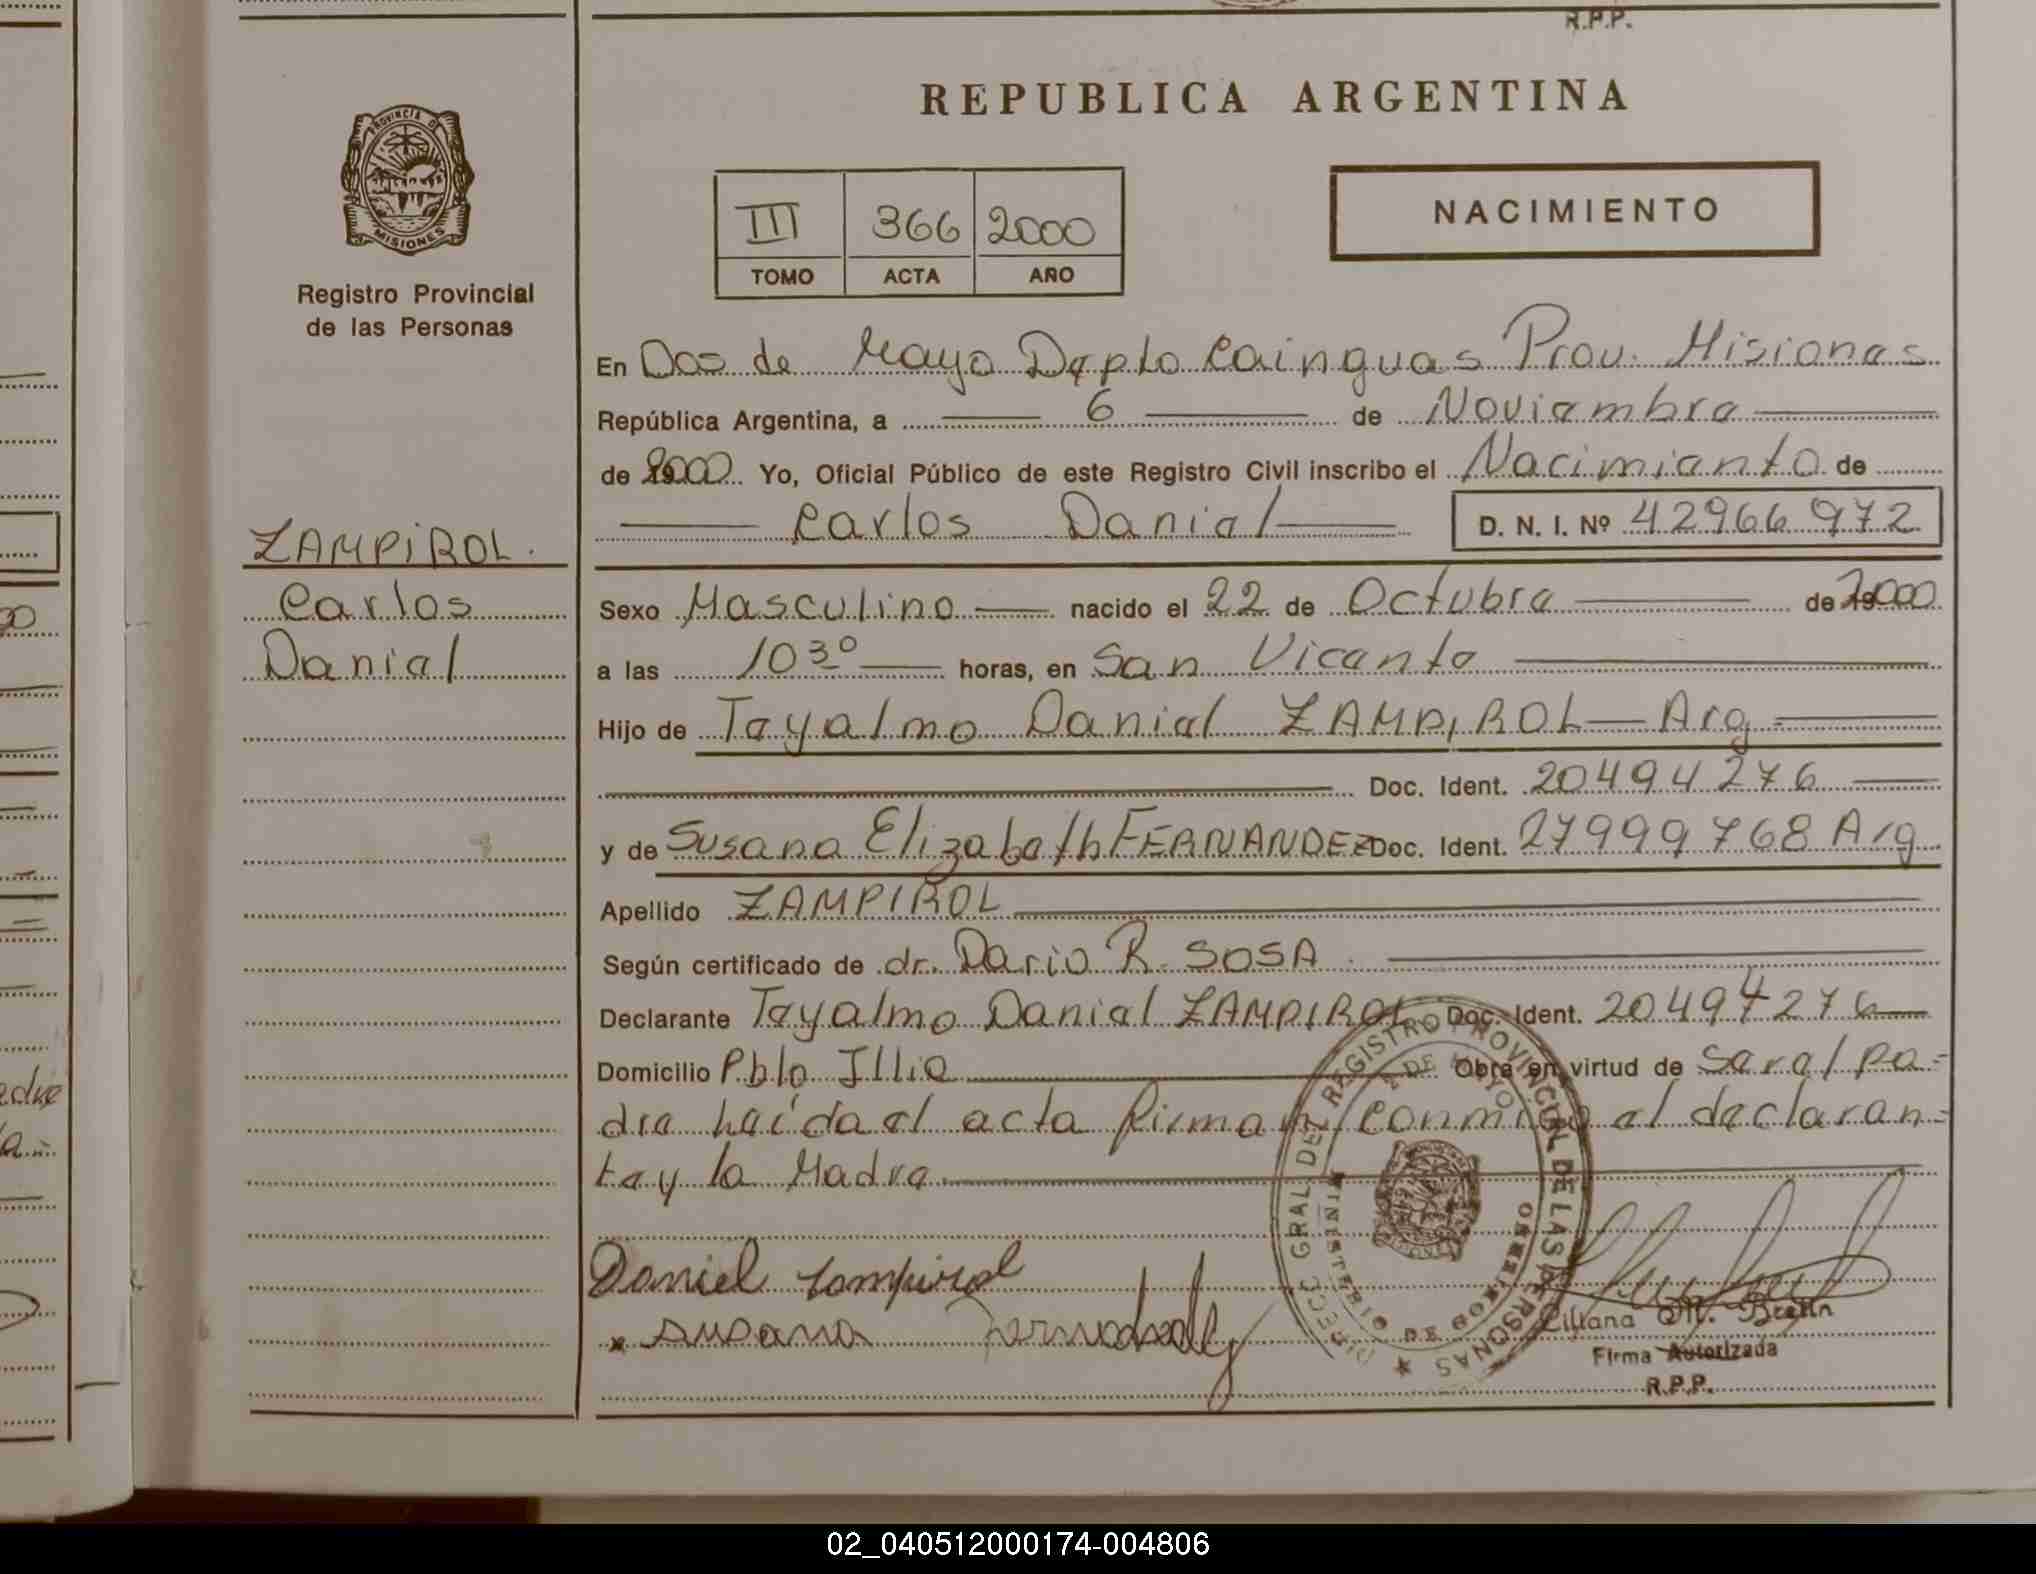 R.P.P.
REPUBLICA ARGENTINA
PROVINCIA DE MISIONES
Registro Provincial
de las Personas
III 366 2000
TOMO ACTA AÑO
NACIMIENTO
En Dos de Mayo Depto Cainguas Prov. Misiones
República Argentina, a 6 de Noviembre
de 2000 Yo, Oficial Público de este Registro Civil inscribo el Nacimiento de
Carlos Daniel D. N. I. Nº 42966972
ZAMPIROL.
Carlos
Daniel
Sexo Masculino nacido el 22 de Octubre de 2000
a las 10 30 horas, en San Vicente
Hijo de Teyelmo Daniel ZAMPIROL Arg
Doc. Ident. 20494276
y de Susana Elizabeth FERNANDEZ Doc. Ident. 27999768 Arg
Apellido ZAMPIROL
Según certificado de dr. Dario R. SOSA
Declarante Teyelmo Daniel ZAMPIROL Doc. Ident. 20494276
Domicilio Pblo Illia Obra en virtud de ser el pa=
dre heída el acta firman conmigo el declaran=
te y la Madre
Daniel Zampirol
Susana
DIRECC. GRAL. DEL REGISTRO PROVINCIAL DE LAS PERSONAS
Liliana
Firma Autorizada
R.P.P.
02_040512000174-004806